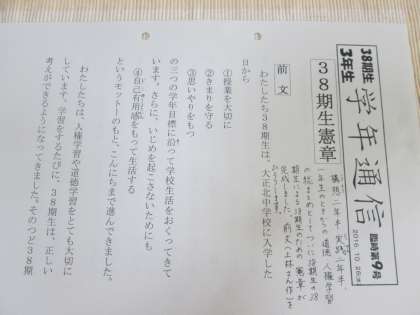 38期生
3年生
学年通信
臨時第9号
2016.10.26㊌
38期生憲章
構想二年半、実践二年半、
一年生のときからの道徳、人権学習
の総まとめとして、ついに38期生の38
期生による38期生のための憲章が
完成しました。前文(上林さん作)を
前文
わたしたち38期生は、大正北中学校に入学した
日から
①授業を大切に
②きまりを守る
③思いやりをもつ
の三つの学年目標に沿って学校生活をおくってきて
います。さらに、いじめを起こさないためにも
④自己有用感をもって生活する
というモットーのもと、こんにちまで進んできました。
わたしたちは、人権学習や道徳学習をとても大切に
しています。学習をするたびに、38期生は、正しい
考えができるようになってきました。そのつど38期